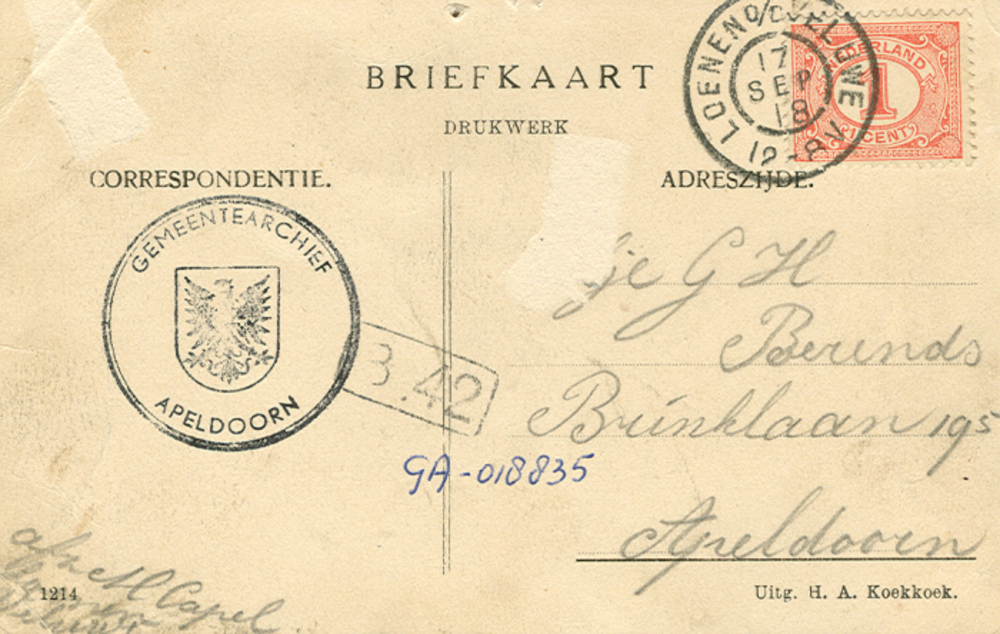 BRIEFKAART
DRUKWERK
LOENEN O/D VELUWE
17
SEP
18
12-8V
NEDERLAND
1
1 CENT
CORRESPONDENTIE.
ADRESZIJDE.
GEMEENTEARCHIEF
APELDOORN
B.42
je G H
Berends
Brinklaan 195
GA-018835
Apeldoorn
afz H Capel
1214
Uitg. H. A. Koekkoek.